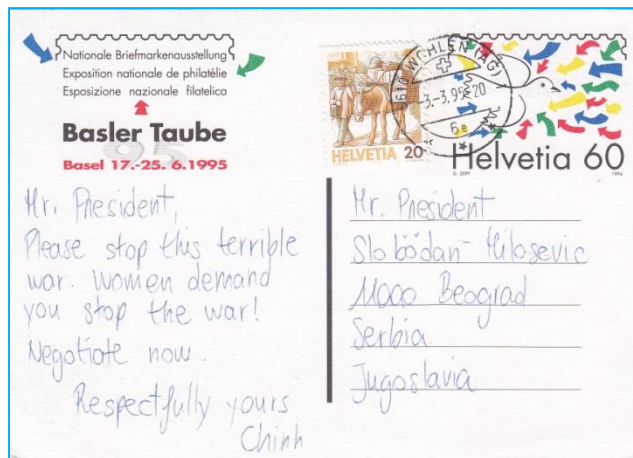 Nationale Briefmarkenausstellung
Exposition nationale de philatélie
Esposizione nazionale filatelica
Basler Taube
95
Basel 17.-25. 6.1995
HELVETIA 20
WOHLEN (AG)
-3.-3.95-20
6e
Helvetia 60
1994
Mr. President,
Please stop this terrible
war. Women demand
you stop the war!
Negotiate now.
Respectfully yours
Chinh
Mr. President
Slobodan Milosevic
11000 Beograd
Serbia
Jugoslavia